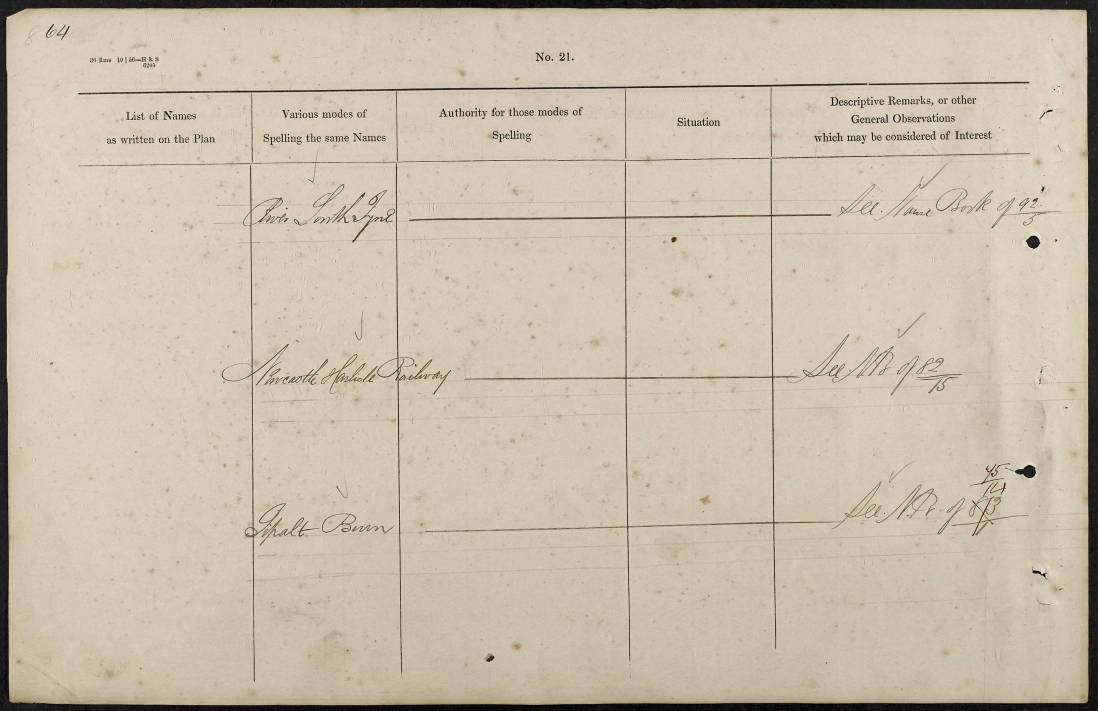 64
36 Rms 10 | 56—H & S
6205
No. 21.
List of Names
as written on the Plan
Various modes of
Spelling the same Names
Authority for those modes of
Spelling
Situation
Descriptive Remarks, or other
General Observations
which may be considered of Interest
River South Tyne
See Name Book of 92/5
Newcastle & Carlisle Railway
See NB of 82/15
Tipalt Burn
See N.B. of